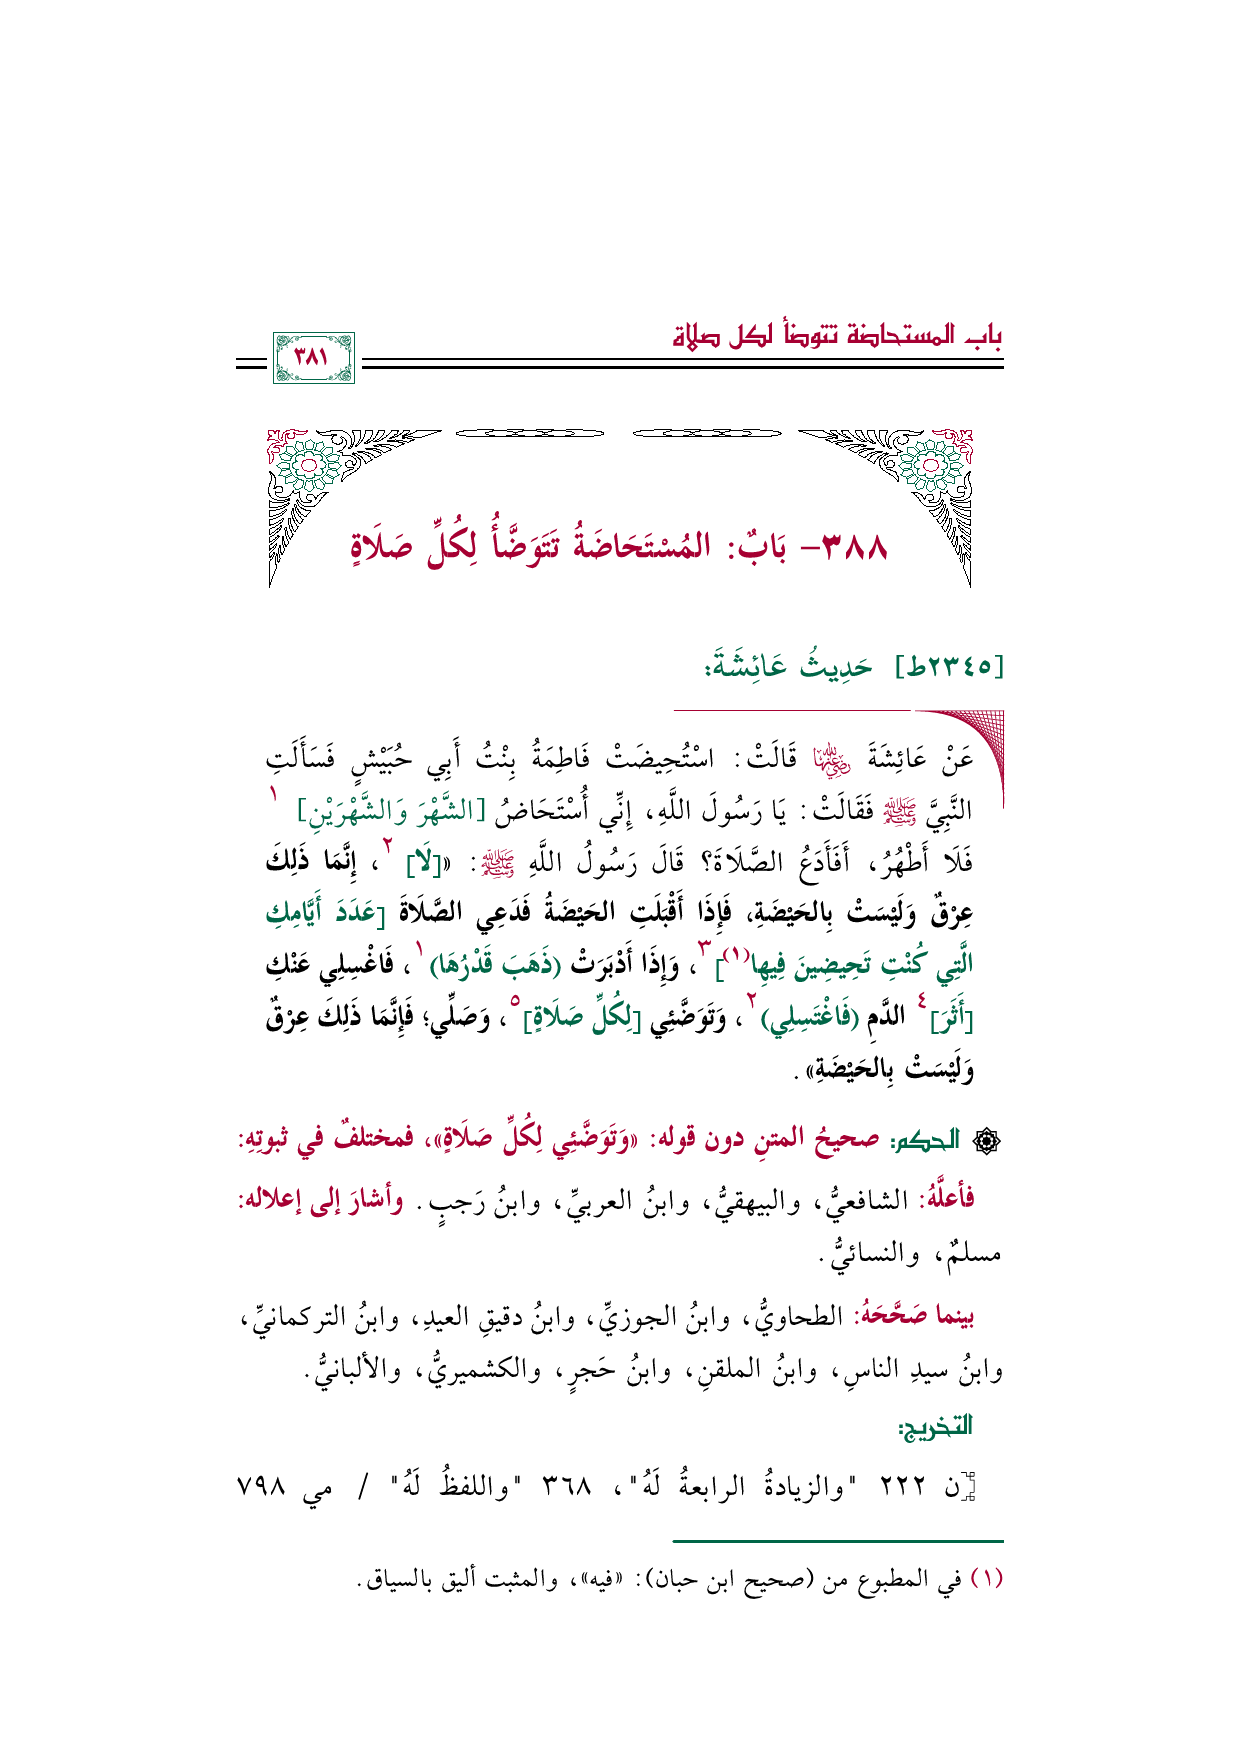 باب المستحاضة تتوضأ لكل صلاة
٣٨١
٣٨٨- بَابٌ: المُسْتَحَاضَةُ تَتَوَضَّأُ لِكُلِّ صَلَاةٍ
[٢٣٤٥ط] حَدِيثُ عَائِشَةَ:
عَنْ عَائِشَةَ رضي الله عنها قَالَتْ: اسْتُحِيضَتْ فَاطِمَةُ بِنْتُ أَبِي حُبَيْشٍ فَسَأَلَتِ
النَّبِيَّ ﷺ فَقَالَتْ: يَا رَسُولَ اللَّهِ، إِنِّي أُسْتَحَاضُ [الشَّهْرَ وَالشَّهْرَيْنِ] ١
فَلَا أَطْهُرُ، أَفَأَدَعُ الصَّلَاةَ؟ قَالَ رَسُولُ اللَّهِ ﷺ: «[لَا] ٢، إِنَّمَا ذَلِكَ
عِرْقٌ وَلَيْسَتْ بِالحَيْضَةِ، فَإِذَا أَقْبَلَتِ الحَيْضَةُ فَدَعِي الصَّلَاةَ [عَدَدَ أَيَّامِكِ
الَّتِي كُنْتِ تَحِيضِينَ فِيهِا(١)] ٣، وَإِذَا أَدْبَرَتْ (ذَهَبَ قَدْرُهَا) ١، فَاغْسِلِي عَنْكِ
[أَثَرَ] ٤ الدَّمِ (فَاغْتَسِلِي) ٢، وَتَوَضَّئِي [لِكُلِّ صَلَاةٍ] ٥، وَصَلِّي؛ فَإِنَّمَا ذَلِكَ عِرْقٌ
وَلَيْسَتْ بِالحَيْضَةِ».
الحكم: صحيحُ المتنِ دون قوله: «وَتَوَضَّئِي لِكُلِّ صَلَاةٍ»، فمختلفٌ في ثبوتِهِ:
فأعلَّهُ: الشافعيُّ، والبيهقيُّ، وابنُ العربيِّ، وابنُ رَجبٍ. وأشارَ إلى إعلاله:
مسلمٌ، والنسائيُّ.
بينما صَحَّحَهُ: الطحاويُّ، وابنُ الجوزيِّ، وابنُ دقيقِ العيدِ، وابنُ التركمانيِّ،
وابنُ سيدِ الناسِ، وابنُ الملقنِ، وابنُ حَجرٍ، والكشميريُّ، والألبانيُّ.
التخريج:
ن ٢٢٢ "والزيادةُ الرابعةُ لَهُ"، ٣٦٨ "واللفظُ لَهُ" / مي ٧٩٨
(١) في المطبوع من (صحيح ابن حبان): «فيه»، والمثبت أليق بالسياق.